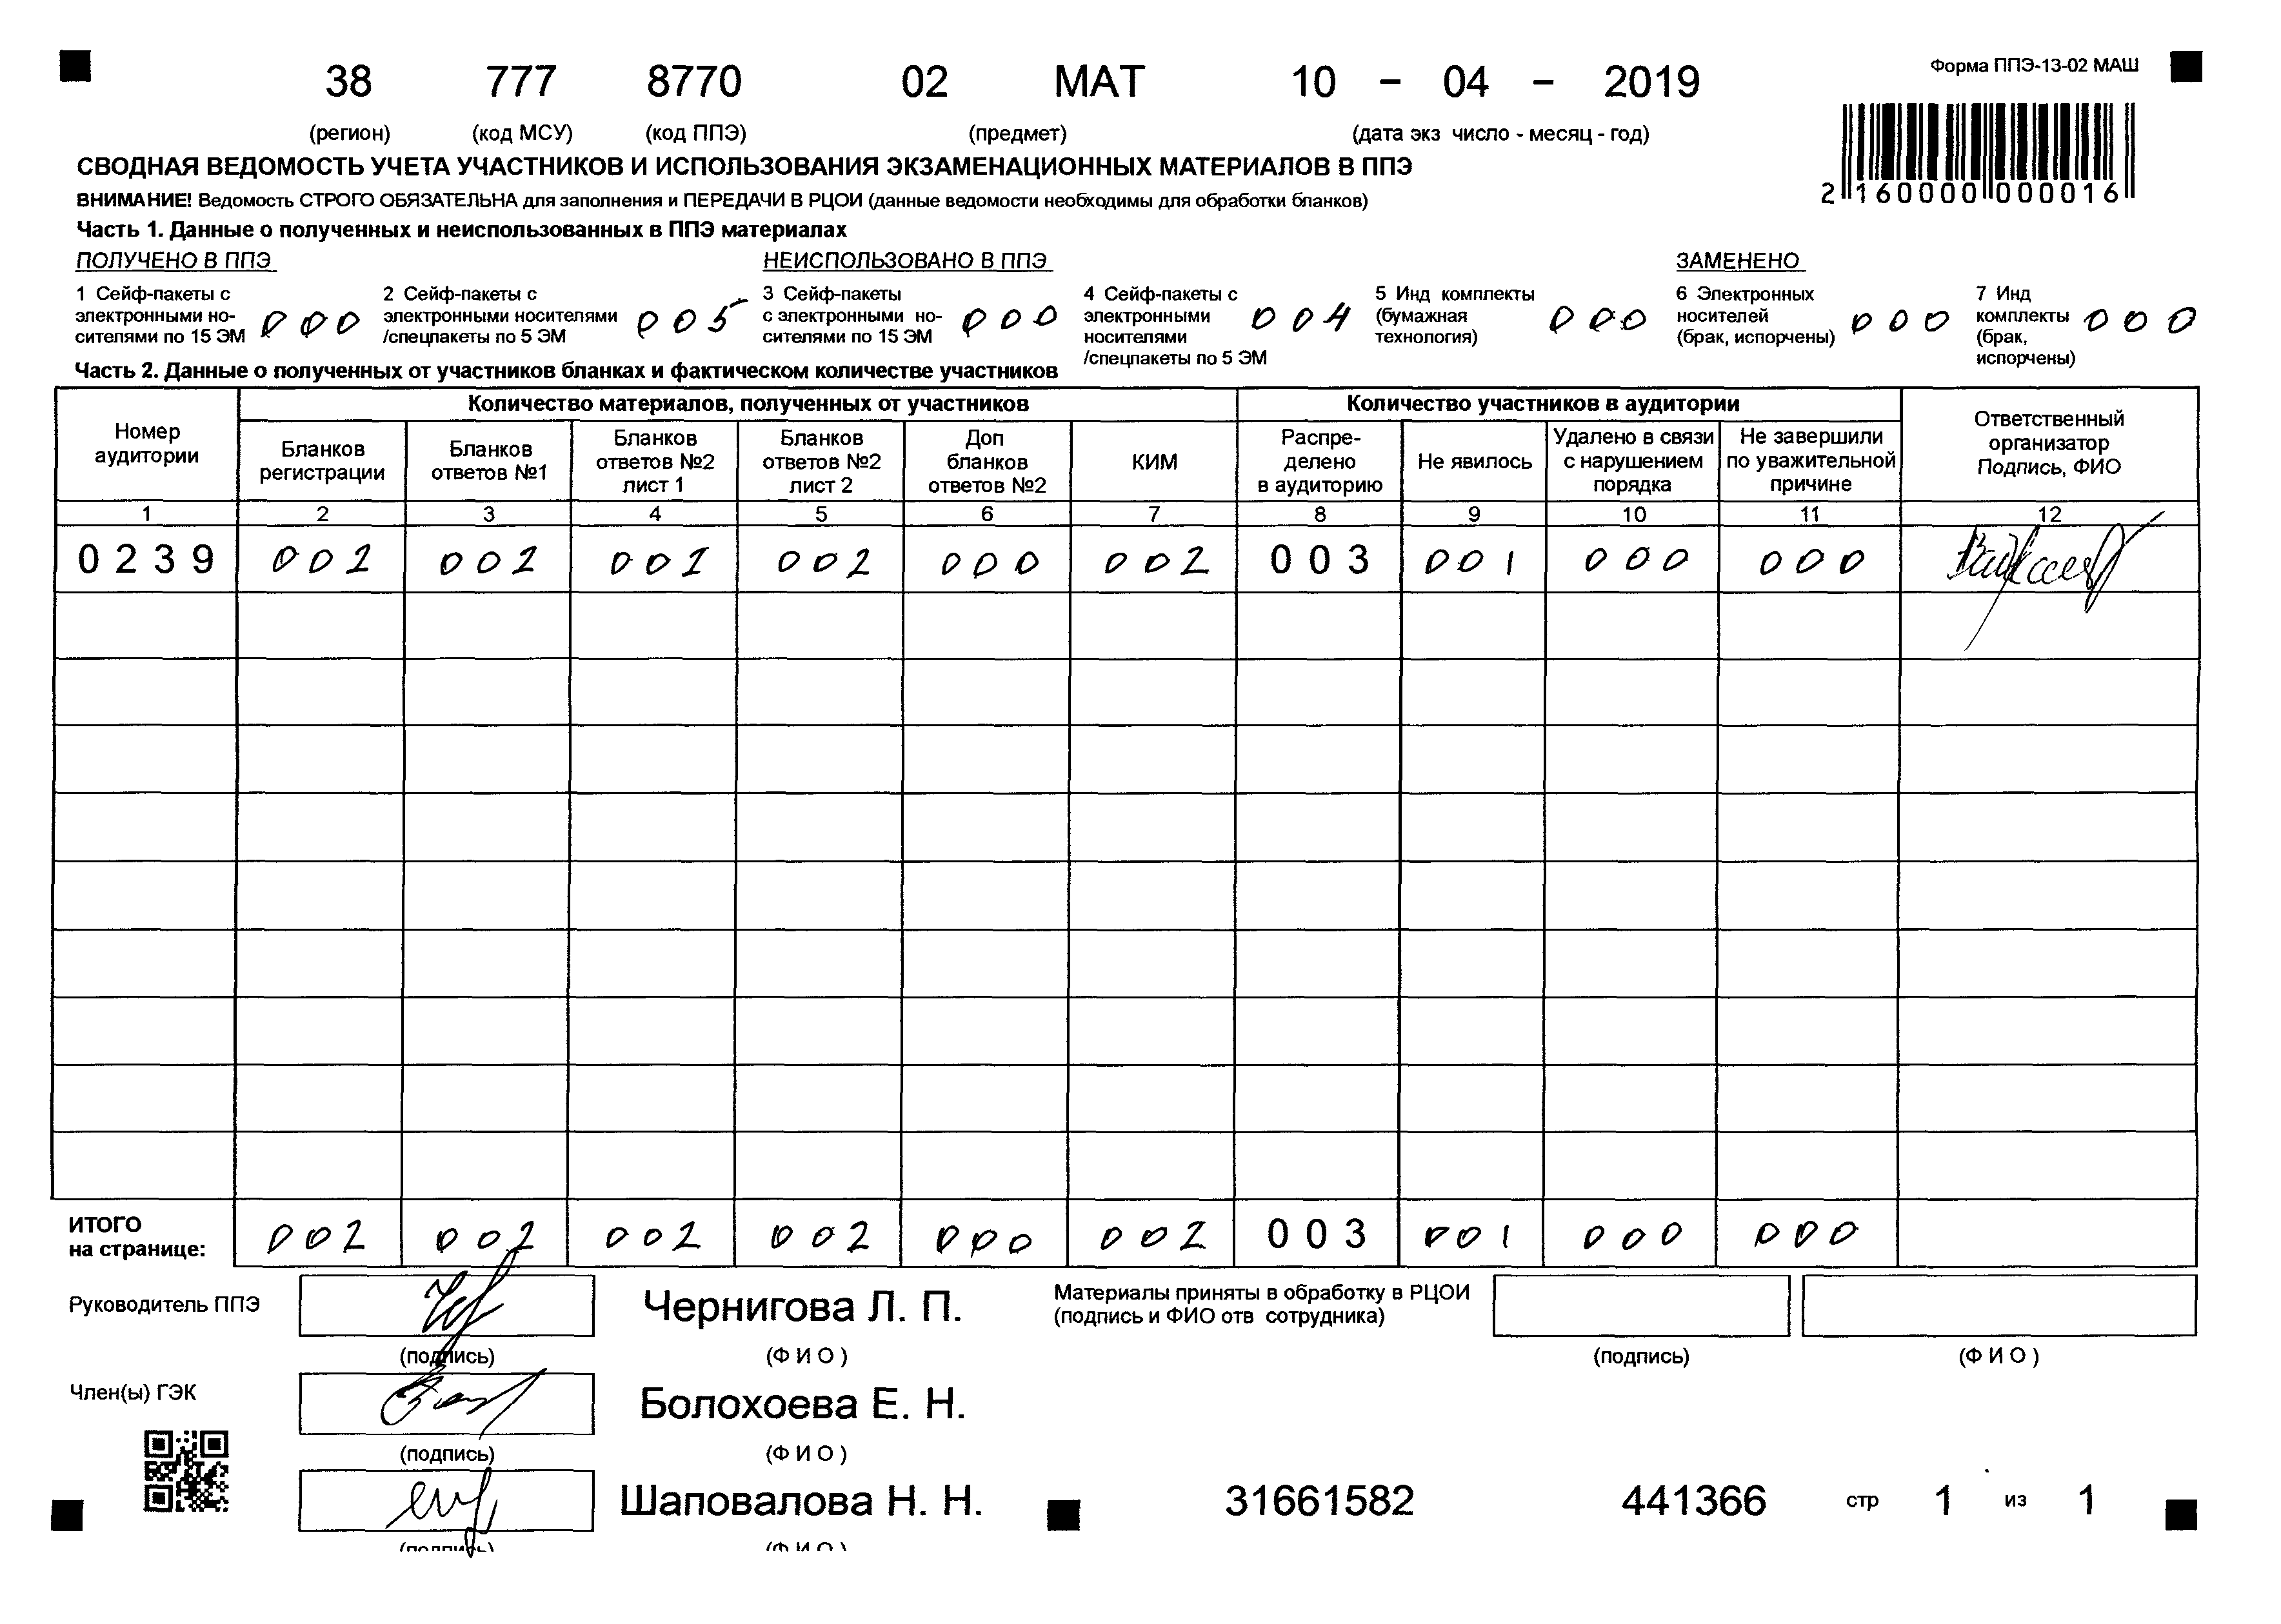 Форма ППЭ-13-02 МАШ
38 777 8770 02 МАТ 10 - 04 - 2019
(регион) (код МСУ) (код ППЭ) (предмет) (дата экз число - месяц - год)
2 160000 000016
СВОДНАЯ ВЕДОМОСТЬ УЧЕТА УЧАСТНИКОВ И ИСПОЛЬЗОВАНИЯ ЭКЗАМЕНАЦИОННЫХ МАТЕРИАЛОВ В ППЭ
ВНИМАНИЕ! Ведомость СТРОГО ОБЯЗАТЕЛЬНА для заполнения и ПЕРЕДАЧИ В РЦОИ (данные ведомости необходимы для обработки бланков)
Часть 1. Данные о полученных и неиспользованных в ППЭ материалах
ПОЛУЧЕНО В ППЭ
1 Сейф-пакеты с
электронными но-
сителями по 15 ЭМ
000
2 Сейф-пакеты с
электронными носителями
/спецпакеты по 5 ЭМ
005
НЕИСПОЛЬЗОВАНО В ППЭ
3 Сейф-пакеты
с электронными но-
сителями по 15 ЭМ
000
4 Сейф-пакеты с
электронными
носителями
/спецпакеты по 5 ЭМ
004
5 Инд комплекты
(бумажная
технология)
000
ЗАМЕНЕНО
6 Электронных
носителей
(брак, испорчены)
000
7 Инд
комплекты
(брак,
испорчены)
000
Часть 2. Данные о полученных от участников бланках и фактическом количестве участников
Номер
аудитории
Количество материалов, полученных от участников
Количество участников в аудитории
Ответственный
организатор
Подпись, ФИО
Бланков
регистрации
Бланков
ответов №1
Бланков
ответов №2
лист 1
Бланков
ответов №2
лист 2
Доп
бланков
ответов №2
КИМ
Распре-
делено
в аудиторию
Не явилось
Удалено в связи
с нарушением
порядка
Не завершили
по уважительной
причине
1 2 3 4 5 6 7 8 9 10 11 12
0239 002 002 002 002 000 002 003 001 000 000
ИТОГО
на странице:
002 002 002 002 000 002 003 001 000 000
Руководитель ППЭ
Чернигова Л. П.
(подпись) (Ф И О )
Материалы приняты в обработку в РЦОИ
(подпись и ФИО отв сотрудника)
(подпись) (Ф И О )
Член(ы) ГЭК
Болохоева Е. Н.
(подпись) (Ф И О )
Шаповалова Н. Н.
(подпись) (Ф И О )
31661582 441366 стр 1 из 1